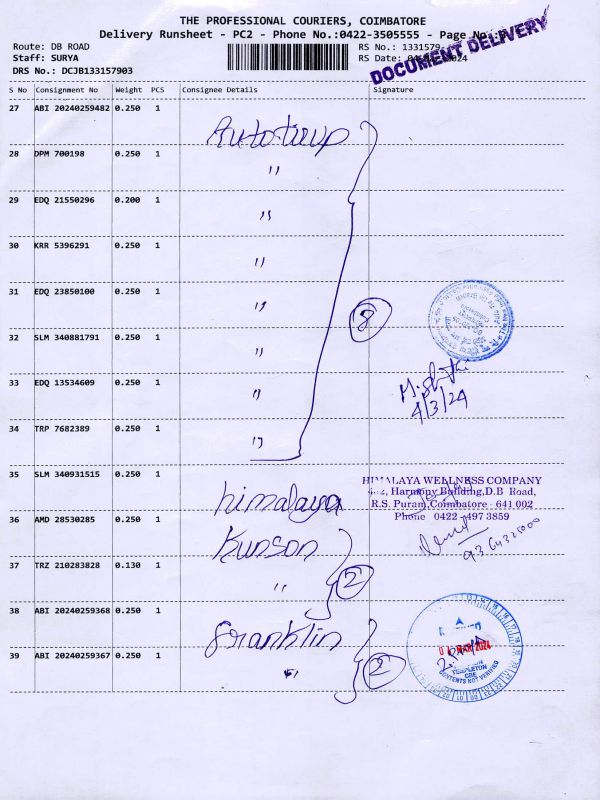 THE PROFESSIONAL COURIERS, COIMBATORE
Delivery Runsheet - PC2 - Phone No.:0422-3505555 - Page No.:
Route: DB ROAD
RS No.: 1331579
Staff: SURYA
RS Date:
DRS No.: DCJB133157903
DOCUMENT DELIVERY
S No Consignment No Weight PCS Consignee Details Signature
27 ABI 20240259482 0.250 1
Autoturp
28 DPM 700198 0.250 1
"
29 EDQ 21550296 0.200 1
"
30 KRR 5396291 0.250 1
"
31 EDQ 23850100 0.250 1
"
8
32 SLM 340881791 0.250 1
"
33 EDQ 13534609 0.250 1
"
4/3/24
34 TRP 7682389 0.250 1
"
35 SLM 340931515 0.250 1
himalaya
HIMALAYA WELLNESS COMPANY
Harmony Building, D.B Road,
R.S. Puram, Coimbatore - 641 002
Phone 0422 - 497 3859
36 AMD 28530285 0.250 1
Kunson
37 TRZ 210283828 0.130 1
"
2
38 ABI 20240259368 0.250 1
Franklin
39 ABI 20240259367 0.250 1
"
2
2024
TEMPLETON
CBE
CONTENTS NOT VERIFIED